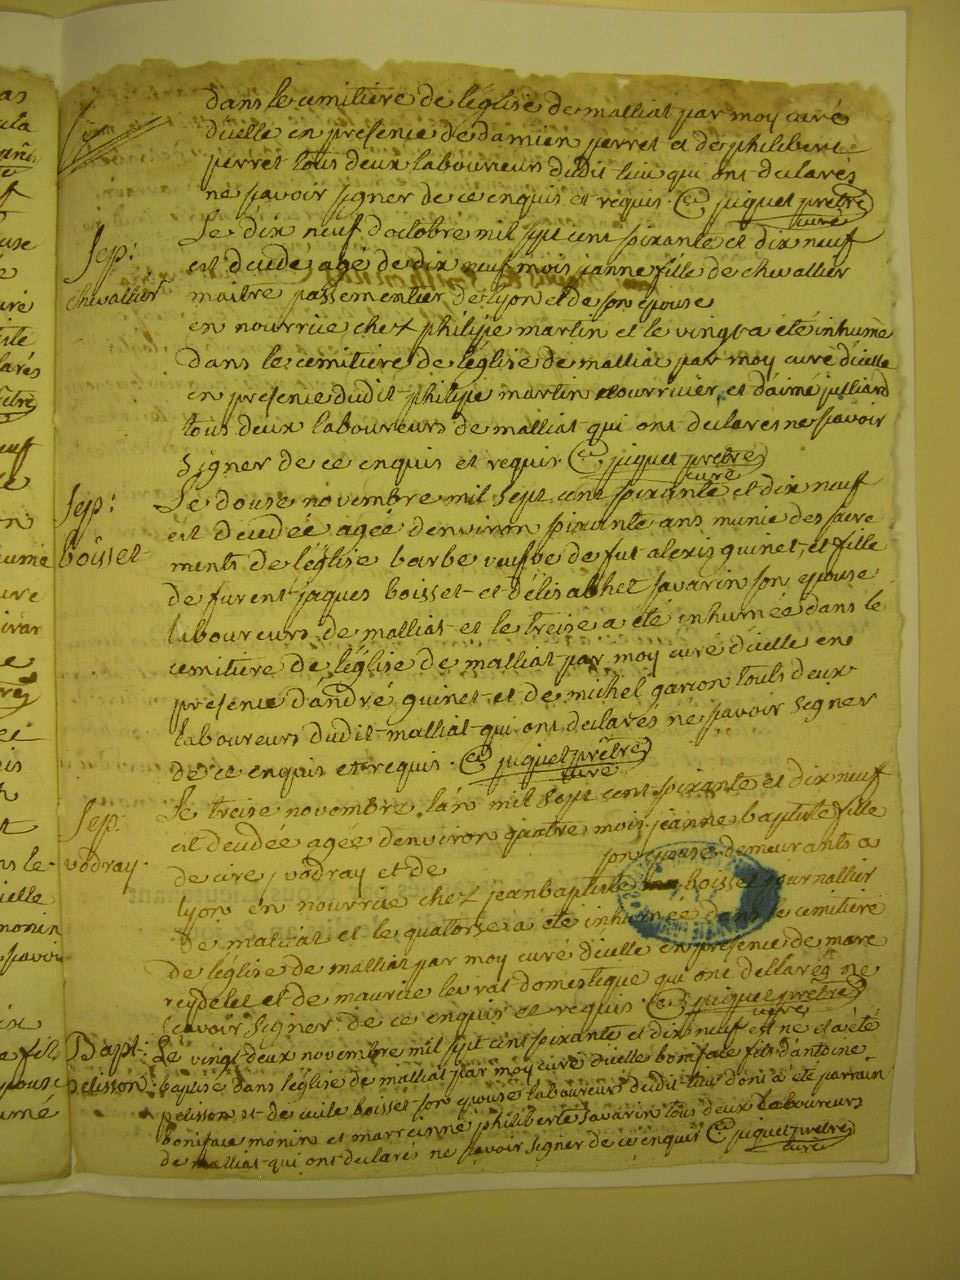 dans le cemitiere de l'église de malliat par moy curé
d'icelle en presence de damien perret et de philibert
perret tous deux laboureurs dudit lieu qui ont declarés
ne sçavoir signer de ce enquis et requis. piquet prêtre
curé
Sep:
chevallier
Le dix neuf d'octobre mil sept cent soixante et dix neuf
est decedés agé de dix neuf mois janne fille de chevallier
maitre passementier de Lyon et de son epouse
en nourrice chez philippe martin et le vingt a été inhumé
dans le cemitiere de l'église de malliat par moy curé d'icelle
en presence dudit philippe martin nourricier et d'aimé julliard
tous deux laboureurs de malliat qui ont declarés ne sçavoir
signer de ce enquis et requis. piquet prêtre
curé
Sep:
boisset
Le douse novembre mil sept cent soixante et dix neuf
est decedée agée d'environ soixante ans munie des sacre
ments de l'église barbe veufve de fut alexis guinet, et fille
de furent jaques boisset et d'élisabhet savarin son epouse
laboureurs de malliat et le treise a été inhumée dans le
cemitiere de l'église de malliat par moy curé d'icelle en
presence d'andré guinet et de michel garion touts deux
laboureurs dudit malliat qui ont declarés ne sçavoir signer
de ce enquis et requis. piquet prêtre
curé
Sep:
vodray.
Le treise novembre l'an mil sept cent soixante et dix neuf
est decedée agée d'environ quatre mois jeanne baptiste fille
de vodray et de son epouse demeurants a
Lyon en nourrice chez jean baptiste boisset journallier
de maliat et le quatorse a été inhumée dans le cemitiere
de l'église de malliat par moy curé d'icelle en presence de marc
reydelet et de maurice levrat domestique qui ont dellarés ne
sçavoir signer de ce enquis et requis. piquet prêtre
curé
Bapt:
pelisson
Le vingt deux novembre mil sept cent soixante et dix neuf est né et a été
baptisé dans l'église de malliat par moy curé d'icelle boniface fils d'antoine
pelisson et de cecile boisset son epouse laboureurs dudit lieu dont a été parrain
boniface monin et marrainne philiberte savarin tous deux laboureurs
de malliat qui ont declarés ne sçavoir signer de ce enquis piquet prêtre
curé